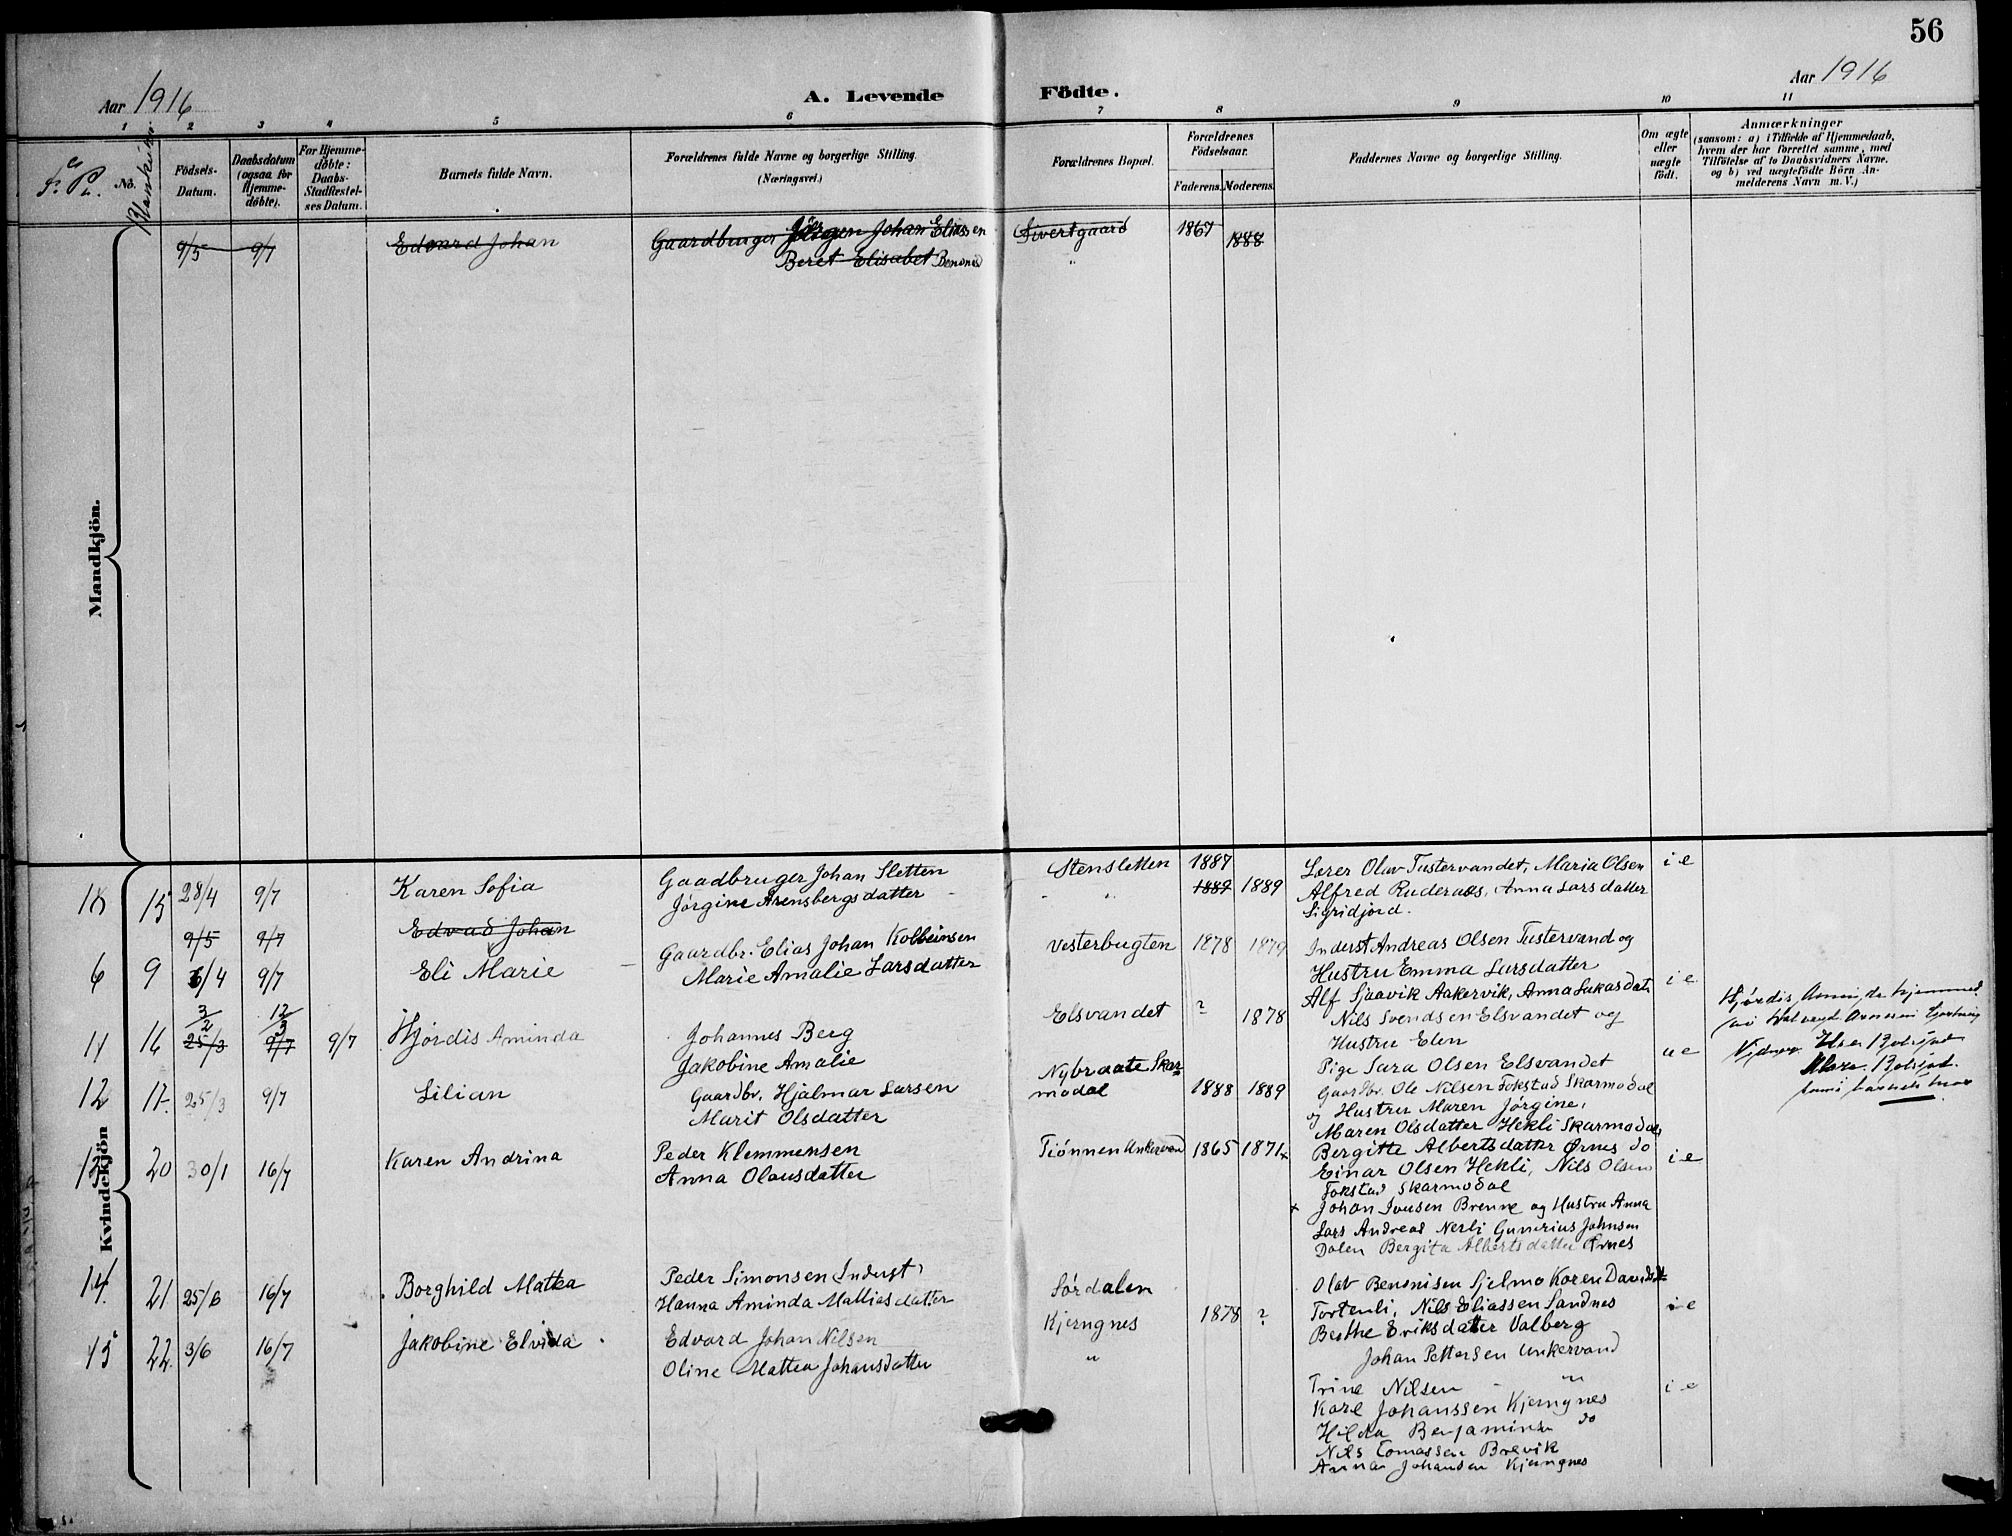 56
Aar 1916
A. Levende Födte.
Aar 1916
1 2 3 4 5 6 7 8 9 10 11
No.
Födsels-Datum.
Daabsdatum (ogsaa for Hjemme-döbte).
For Hjemme-döbte: Daabs-Stadfæstel-ses Datum.
Barnets fulde Navn.
Forældrenes fulde Navne og borgerlige Stilling. (Næringsvei.)
Forældrenes Bopæl.
Forældrenes Födselsaar.
Faderens. Moderens.
Faddernes Navne og borgerlige Stilling.
Om ægte eller uægte födt.
Anmærkninger
(saasom: a) i Tilfælde af Hjemmedaab, hvem der har forrettet samme, med Tilföielse af to Daabsvidners Navne. og b) ved uægtefödte Börn An-melderens Navn m.V.)
Mandkjön.
9/5 9/7 Edvard Johan Gaardbruger Jörgen Johan Eliassen Sivertgaard 1867 1888
Beret Elisabet "
Kvindekjön
10 15 28/4 9/7 Karen Sofia
Gaadbruger Johan Sletten
Jörgine Arensbergsdatter
Stensletten 1887
1887 1889
Lærer Olav Tustervandet, Maria Olsen
Alfred Ruderaas, Anna Larsdatter
Sigridjord.
i e
9/5 9/7 Edvad Johan
6 9 6/4 9/7 Eli Marie
Gaardbr. Elias Johan Kolbeinsen
Marie Amalie Larsdatter
Vesterbugten 1878 1879
Inderst Andreas Olsen Tustervand og
Hustru Emma Larsdatter
Alf Sjaavik Aakervik, Anna Lukasdatr
i e
11 16 3/2 25/3 12/3 9/7 9/7 Hjördis Aminda
Johannes Berg
Jakobine Amalie
Elsvandet ? 1878
Nils Svendsen Elsvandet og
Hustru Elen
Pige Sara Olsen Elsvandet
u e
Hjördis Aminda hjemmed.
12 17. 25/3 9/7 Lilian
Gaardbr. Hjalmar Larsen
Marit Olsdatter
Nybraate Skar
modal 1888 1889
Gaardbr. Ole Nilsen Fokstad Skarmodal
og Hustru Maren Jörgine,
Maren Olsdatter Hekli Skarmodal
Bergitte Albertsdatter Örnes do
Einar Olsen Hekli, Nils Olsen
Fokstad Skarmodal
i e
13 20 30/1 16/7 Karen Andrina
Peder Klemmensen
Anna Olausdatter
Tiönnen Unkervand 1865 1871 x
x Johan Iversen Brenne og Hustru Anna
Lars Andreas Nerli Gunerius Johnsen
Dalen Bergita Albertsdatter Örnes
14. 21 25/6 16/7 Borghild Matea
Peder Simonsen (Inderst)
Hanna Aminda Mattiasdatter
Sördalen
Olav Benonisen Sjelmo Karen Davidsdt
Tortenli, Nils Eliassen Sandnes
Berthe Eriksdatter Valberg
Johan Pettersen Unkervand
i e
15 22. 3/6 16/7 Jakobine Elvida
Edvard Johan Nilsen
Oline Mattea Johansdatter
Kjerngnes 1878 ?
"
Trine Nilsen - "
Karl Johanssen Kjerngnes
Hilda Benjaminsn do
Nils Tomassen Brevik
Anna Johansen Kjerngnes
i e